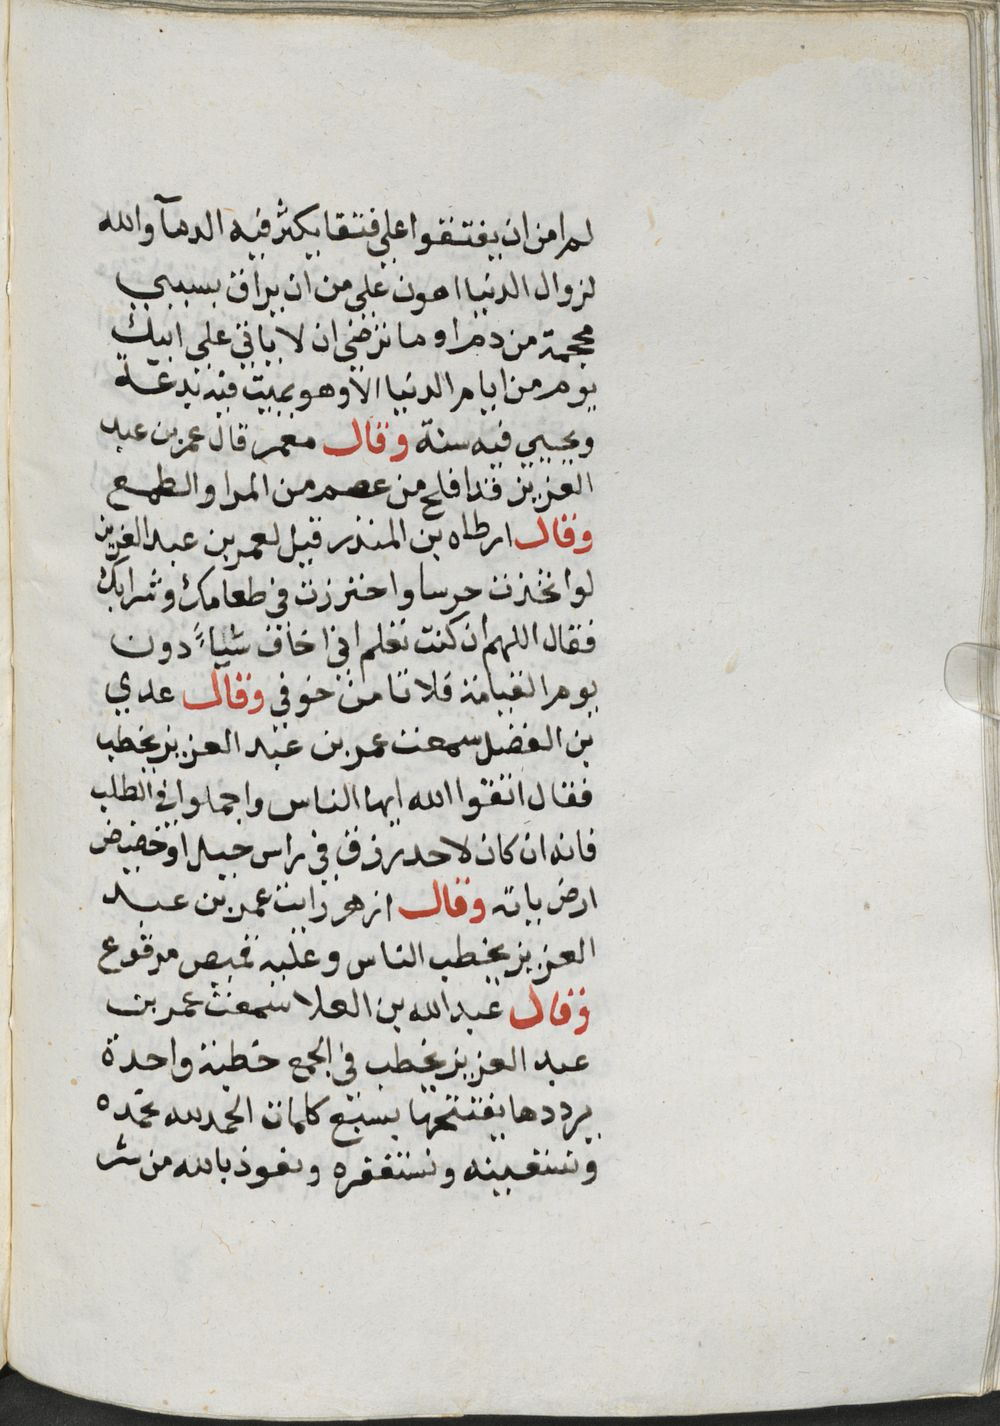 لم امن ان يفتقوا علي فتقا يكثر فيه الدمآ والله
لزوال الدنيا اهون علي من ان يراق بسببي
محجمة من دم او ما ترضي ان لا ياتي علي ابيك
يوم من ايام الدنيا الا وهو يميت فيه بدعة
ويحيي فيه سنة وقال معمر قال عمر بن عبد
العزيز قد افلح من عصم من المرا والطمع
وقال ارطاه بن المنذر قيل لعمر بن عبد العزيز
لو اتخذت حرسا واحترزت في طعامك وشرابك
فقال اللهم ان كنت تعلم اني اخاف شياً دون
يوم القيامة فلا تامن خوفي وقال عدي
بن الفضل سمعت عمر بن عبد العزيز يخطب
فقال اتقوا الله ايها الناس واجملوا في الطلب
فانه ان كان لاحد رزق في راس جبل او حضيض
ارض ياته وقال ازهر رايت عمر بن عبد
العزيز يخطب الناس وعليه قميص مرقوع
وقال عبد الله بن العلا سمعت عمر بن
عبد العزيز يخطب في الجمع خطبة واحدة
يرددها يفتتحها بسبع كلمات الحمد لله نحمده
ونستعينه ونستغفره ونعوذ بالله من شر